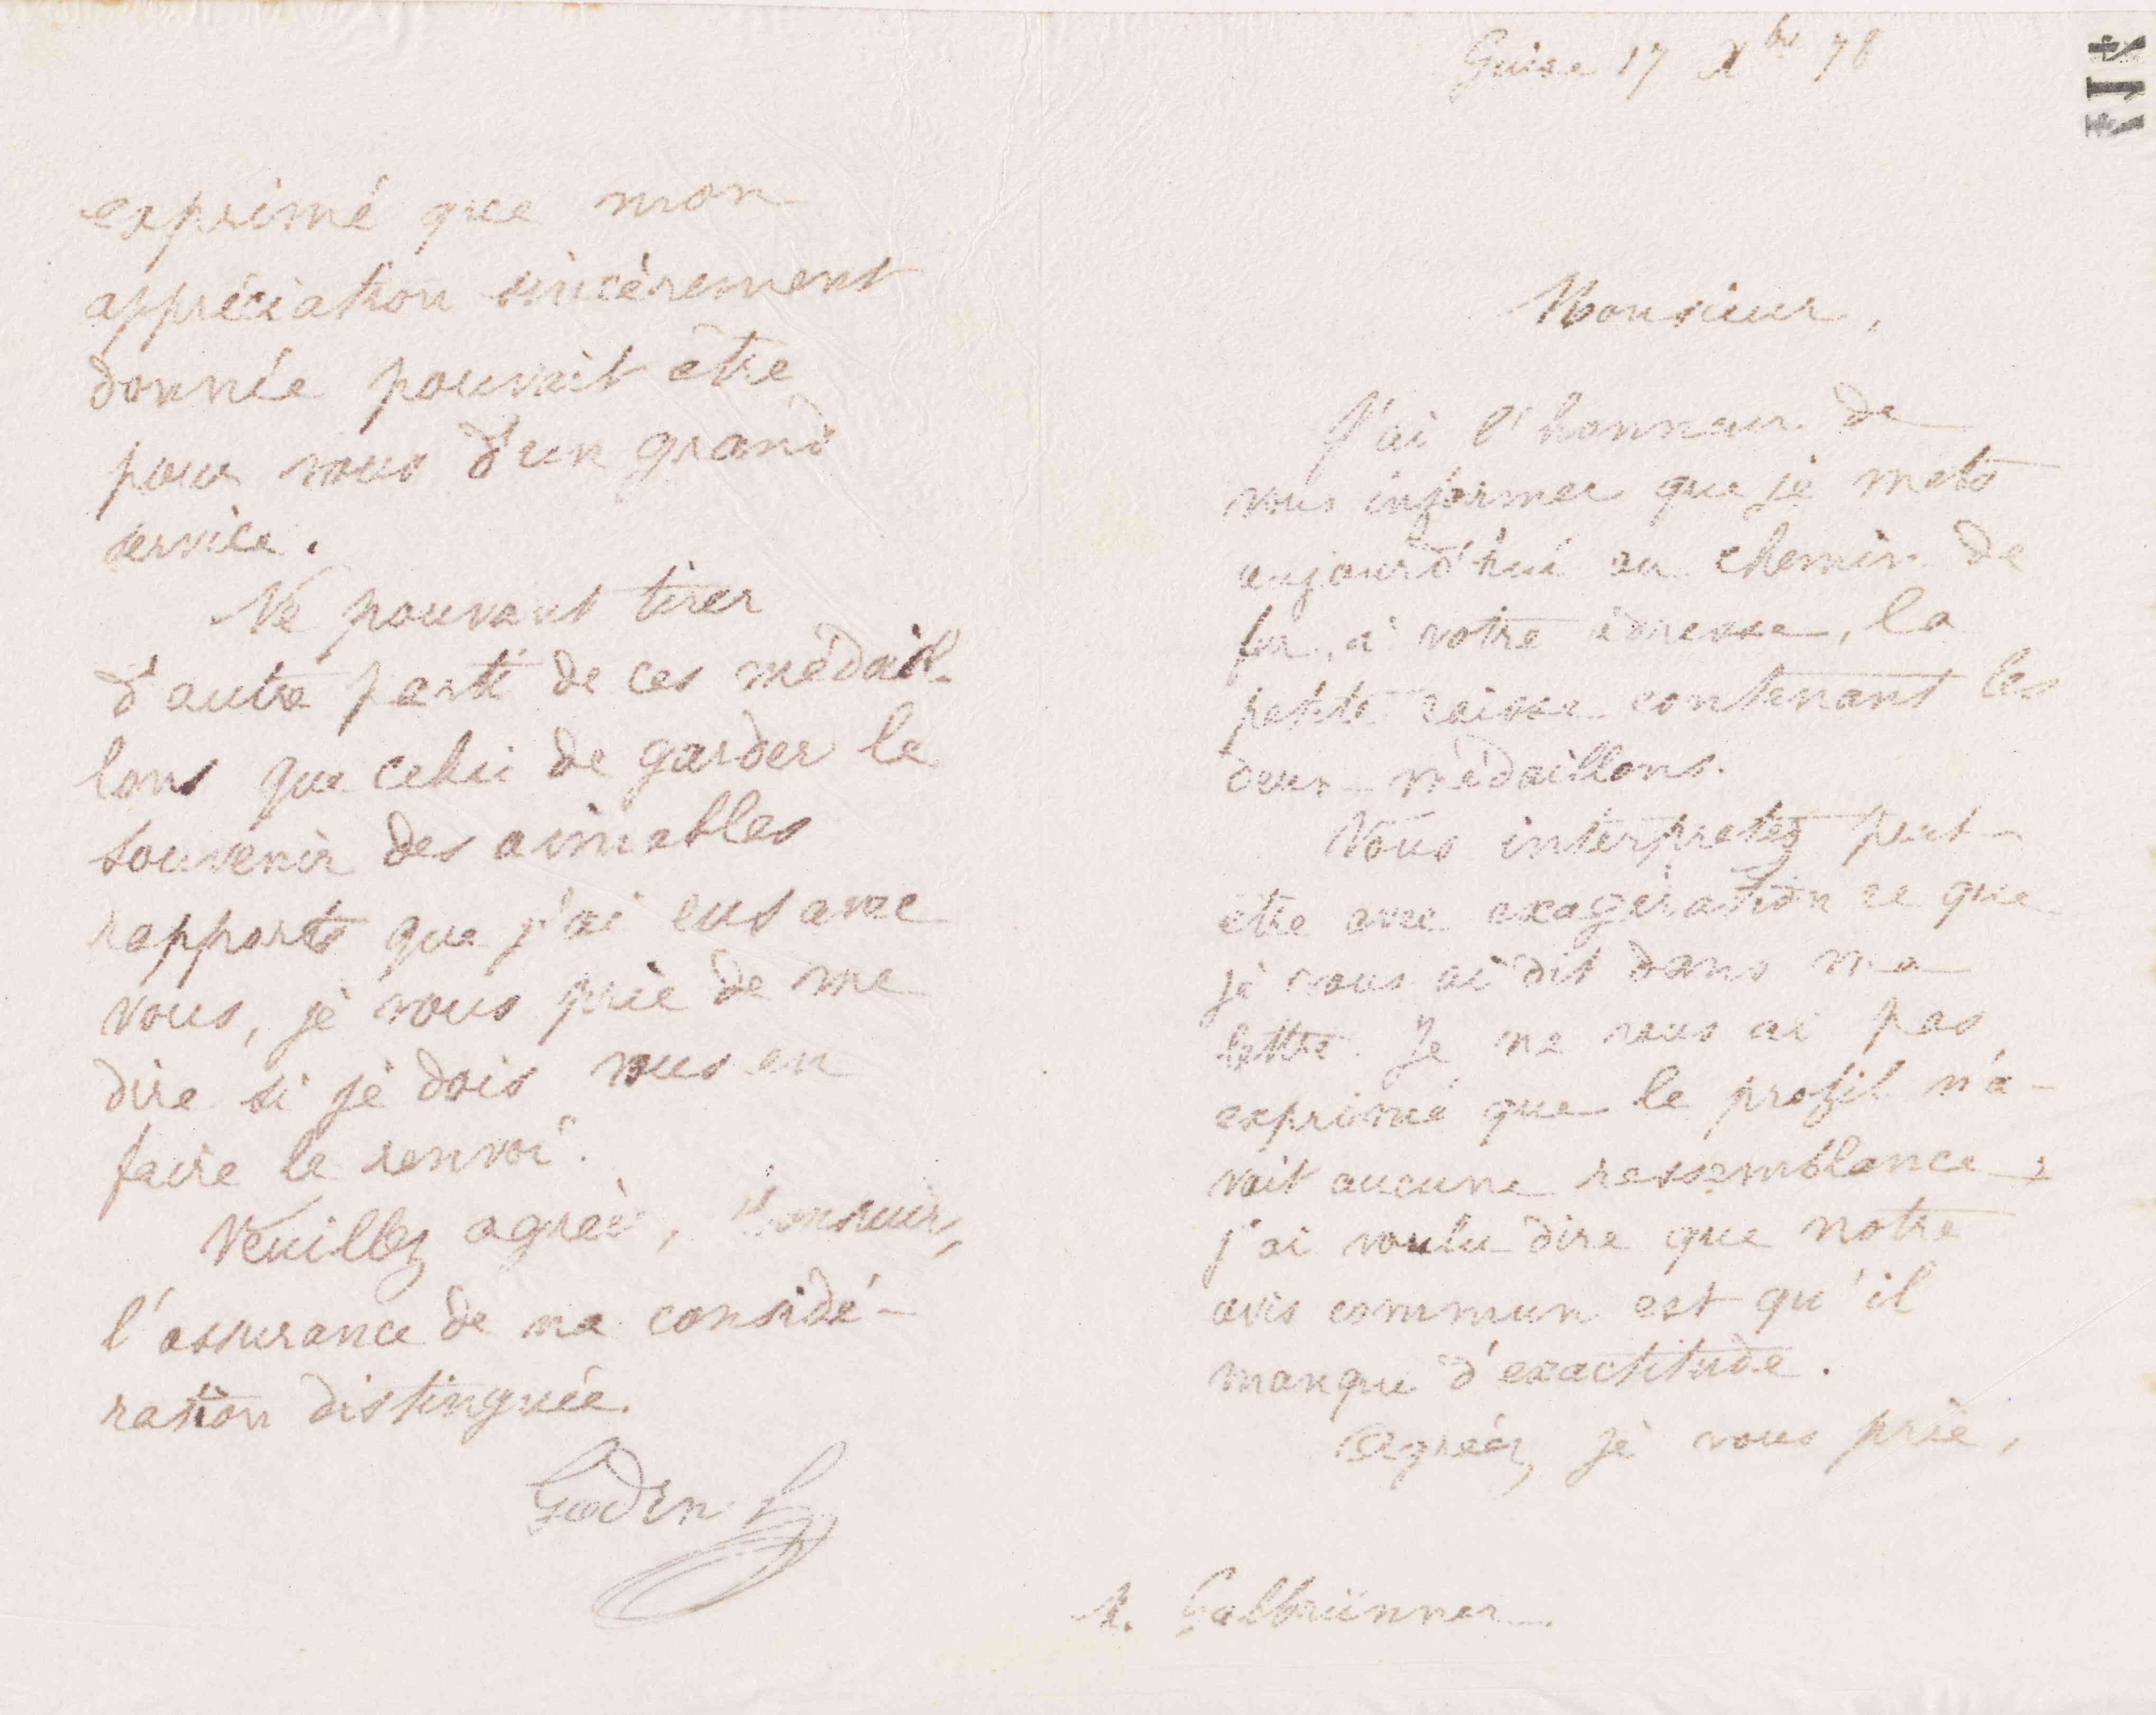 exprimé que mon
appréciation sincèrement
donnée pouvait être
pour vous d'un grand
service.
Ne pouvant tirer
d'autre parti de ces médail-
lons que celui de garder le
souvenir des aimables
rapports que j'ai eus avec
vous, je vous prie de me
dire si je dois vous en
faire le renvoi.
Veuillez agréer, Monsieur,
l'assurance de ma considé-
ration distinguée.
Godin
Guise 17 Xbre 78
Monsieur,
J'ai l'honneur de
vous informer que je mets
aujourd'hui au chemin de
fer, à votre adresse, la
petite caisse contenant les
deux médaillons.
Vous interpretez peut-
être avec exagération ce que
je vous ai dit dans ma
lettre. Je ne vous ai pas
exprimé que le profil n'a-
vait aucune ressemblance,
j'ai voulu dire que notre
avis commun est qu'il
manque d'exactitude.
Agréez, je vous prie,
M. Galbrünner